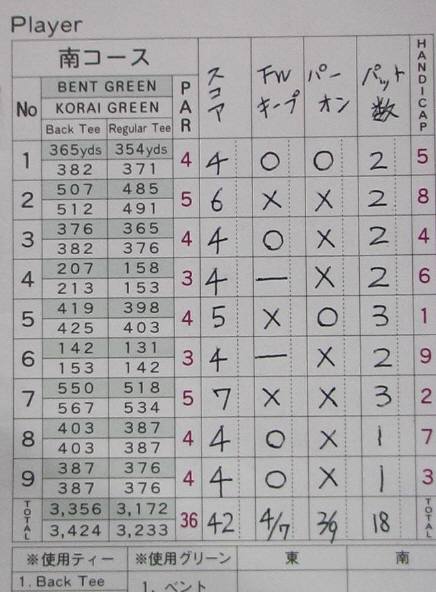 Player
南コース
No
BENT GREEN
KORAI GREEN
Back Tee Regular Tee
PAR
スコア
FWキープ
パーオン
パット数
HANDICAP
1 365yds 354yds 4 4 ○ ○ 2 5
382 371
2 507 485 5 6 × × 2 8
512 491
3 376 365 4 4 ○ × 2 4
382 376
4 207 158 3 4 — × 2 6
213 153
5 419 398 4 5 × ○ 3 1
425 403
6 142 131 3 4 — × 2 9
153 142
7 550 518 5 7 × × 3 2
567 534
8 403 387 4 4 ○ × 1 7
403 387
9 387 376 4 4 ○ × 1 3
387 376
TOTAL 3,356 3,172 36 42 4/7 3/9 18 TOTAL
3,424 3,233
※使用ティー ※使用グリーン 東 南
1. Back Tee 1. ベント